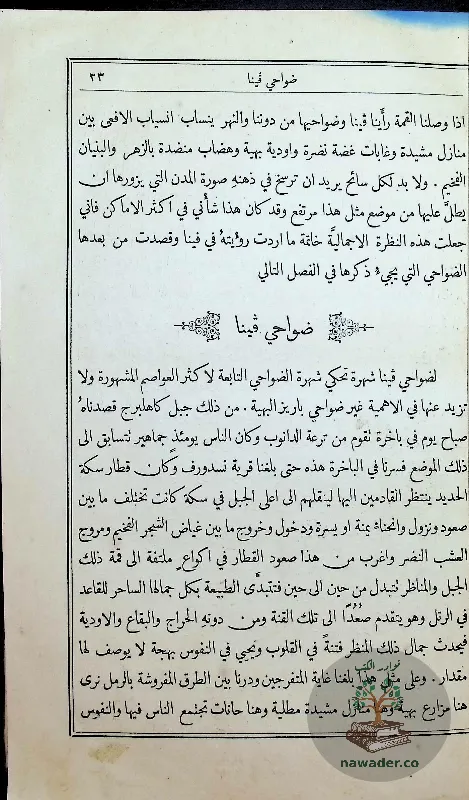 ضواحي ڤينا
٣٣
اذا وصلنا القمة رأينا ڤينا وضواحيها من دوننا والنهر ينساب انسياب الافعى بين
منازل مشيدة وغابات غضة نضرة واودية بهية وهضاب منضدة بالزهر والبنيان
الفخيم . ولا بد لكل سائح يريد ان ترسخ في ذهنهِ صورة المدن التي يزورها ان
يطلَّ عليها من موضع مثل هذا مرتفع وقد كان هذا شأني في اكثر الاماكن فاني
جعلت هذه النظرة الاجماليَّة خاتمة ما اردت رؤيتهُ في فينا وقصدت من بعدها
الضواحي التي يجيء ذكرها في الفصل التالي
ضواحي ڤينا
لضواحي ڤينا شهرة تحكي شهرة الضواحي التابعة لاكثر العواصم المشهورة ولا
تزيد عنها في الاهمية غير ضواحي باريز البهية . من ذلك جبل كاهلبرج قصدناهُ
صباح يوم في باخرة تقوم من ترعة الدانوب وكان الناس يومئذٍ جماهير تتسابق الى
ذلك الموضع فسرنا في الباخرة هذه حتى بلغنا قرية نسدورف وكان قطار سكة
الحديد ينتظر القادمين اليها لينقلهم الى اعلى الجبل في سكة كانت تختلف ما بين
صعود ونزول وانحناء يمنة او يسرة ودخول وخروج ما بين غياض الشجر الفخيم ومروج
العشب النضر واغرب من هذا صعود القطار في اكواعٍ ملتفة الى قمة ذلك
الجبل والمناظر تتبدل من حين الى حين فتتبدَّى الطبيعة بكل جمالها الساحر للقاعد
في الرتل وهو يتقدم صُعُدًا الى تلك القنة ومن دونهِ الحراج والبقاع والاودية
فيحدث جمال ذلك المنظر فتنةً في القلوب ويحيي في النفوس بهجة لا يوصف لها
مقدار . وعلى مثل هذا بلغنا غاية المتفرجين ودرنا بين الطرق المفروشة بالرمل نرى
هنا مزارع بهية وهناك منازل مشيدة مطلية وهنا حانات تجتمع الناس فيها والنفوس
نوادر الكتب
nawader.co